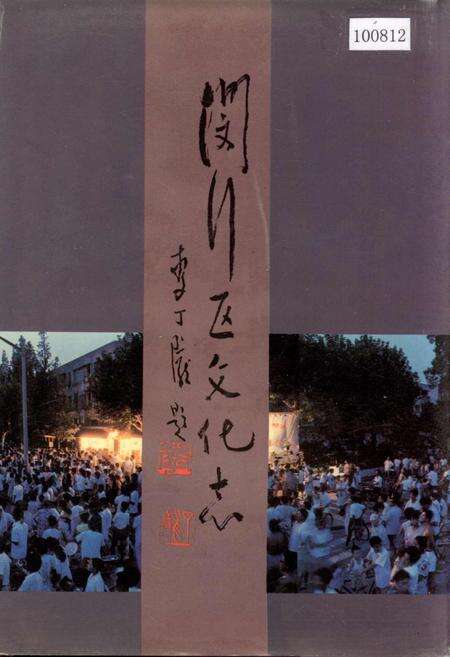 100812
闵行区文化志
李丁陇题